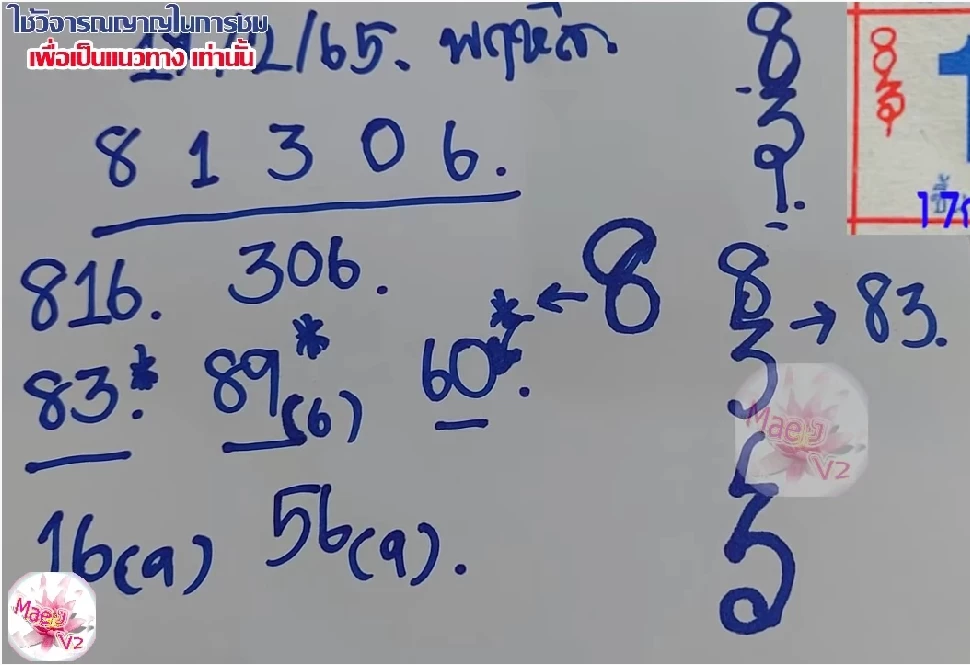 ใช้วิจารณญาณในการชม
เพื่อเป็นแนวทาง เท่านั้น
/12/65. พฤหัส.
8 1 3 0 6.
816. 306. ← 8
83*. 89* (6) 60*.
16(9) 56(9).
8
3
9.
8
3 → 83.
5
3
83
9
17
Maey
V2
Maey
V2